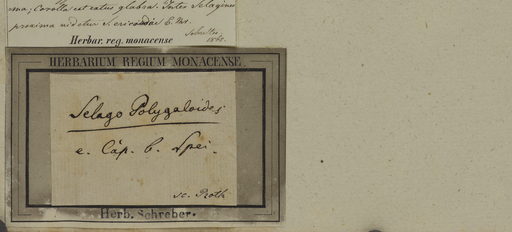 ma; Corolla est extus glabra. Inter Selagines
proxima videtur S. ericoidae E. M.
Herbar. reg. monacense
1863.
HERBARIUM REGIUM MONACENSE
Selago Polygaloides
e. Cap. b. Spei.
sc. Roth
Herb. Schreber.